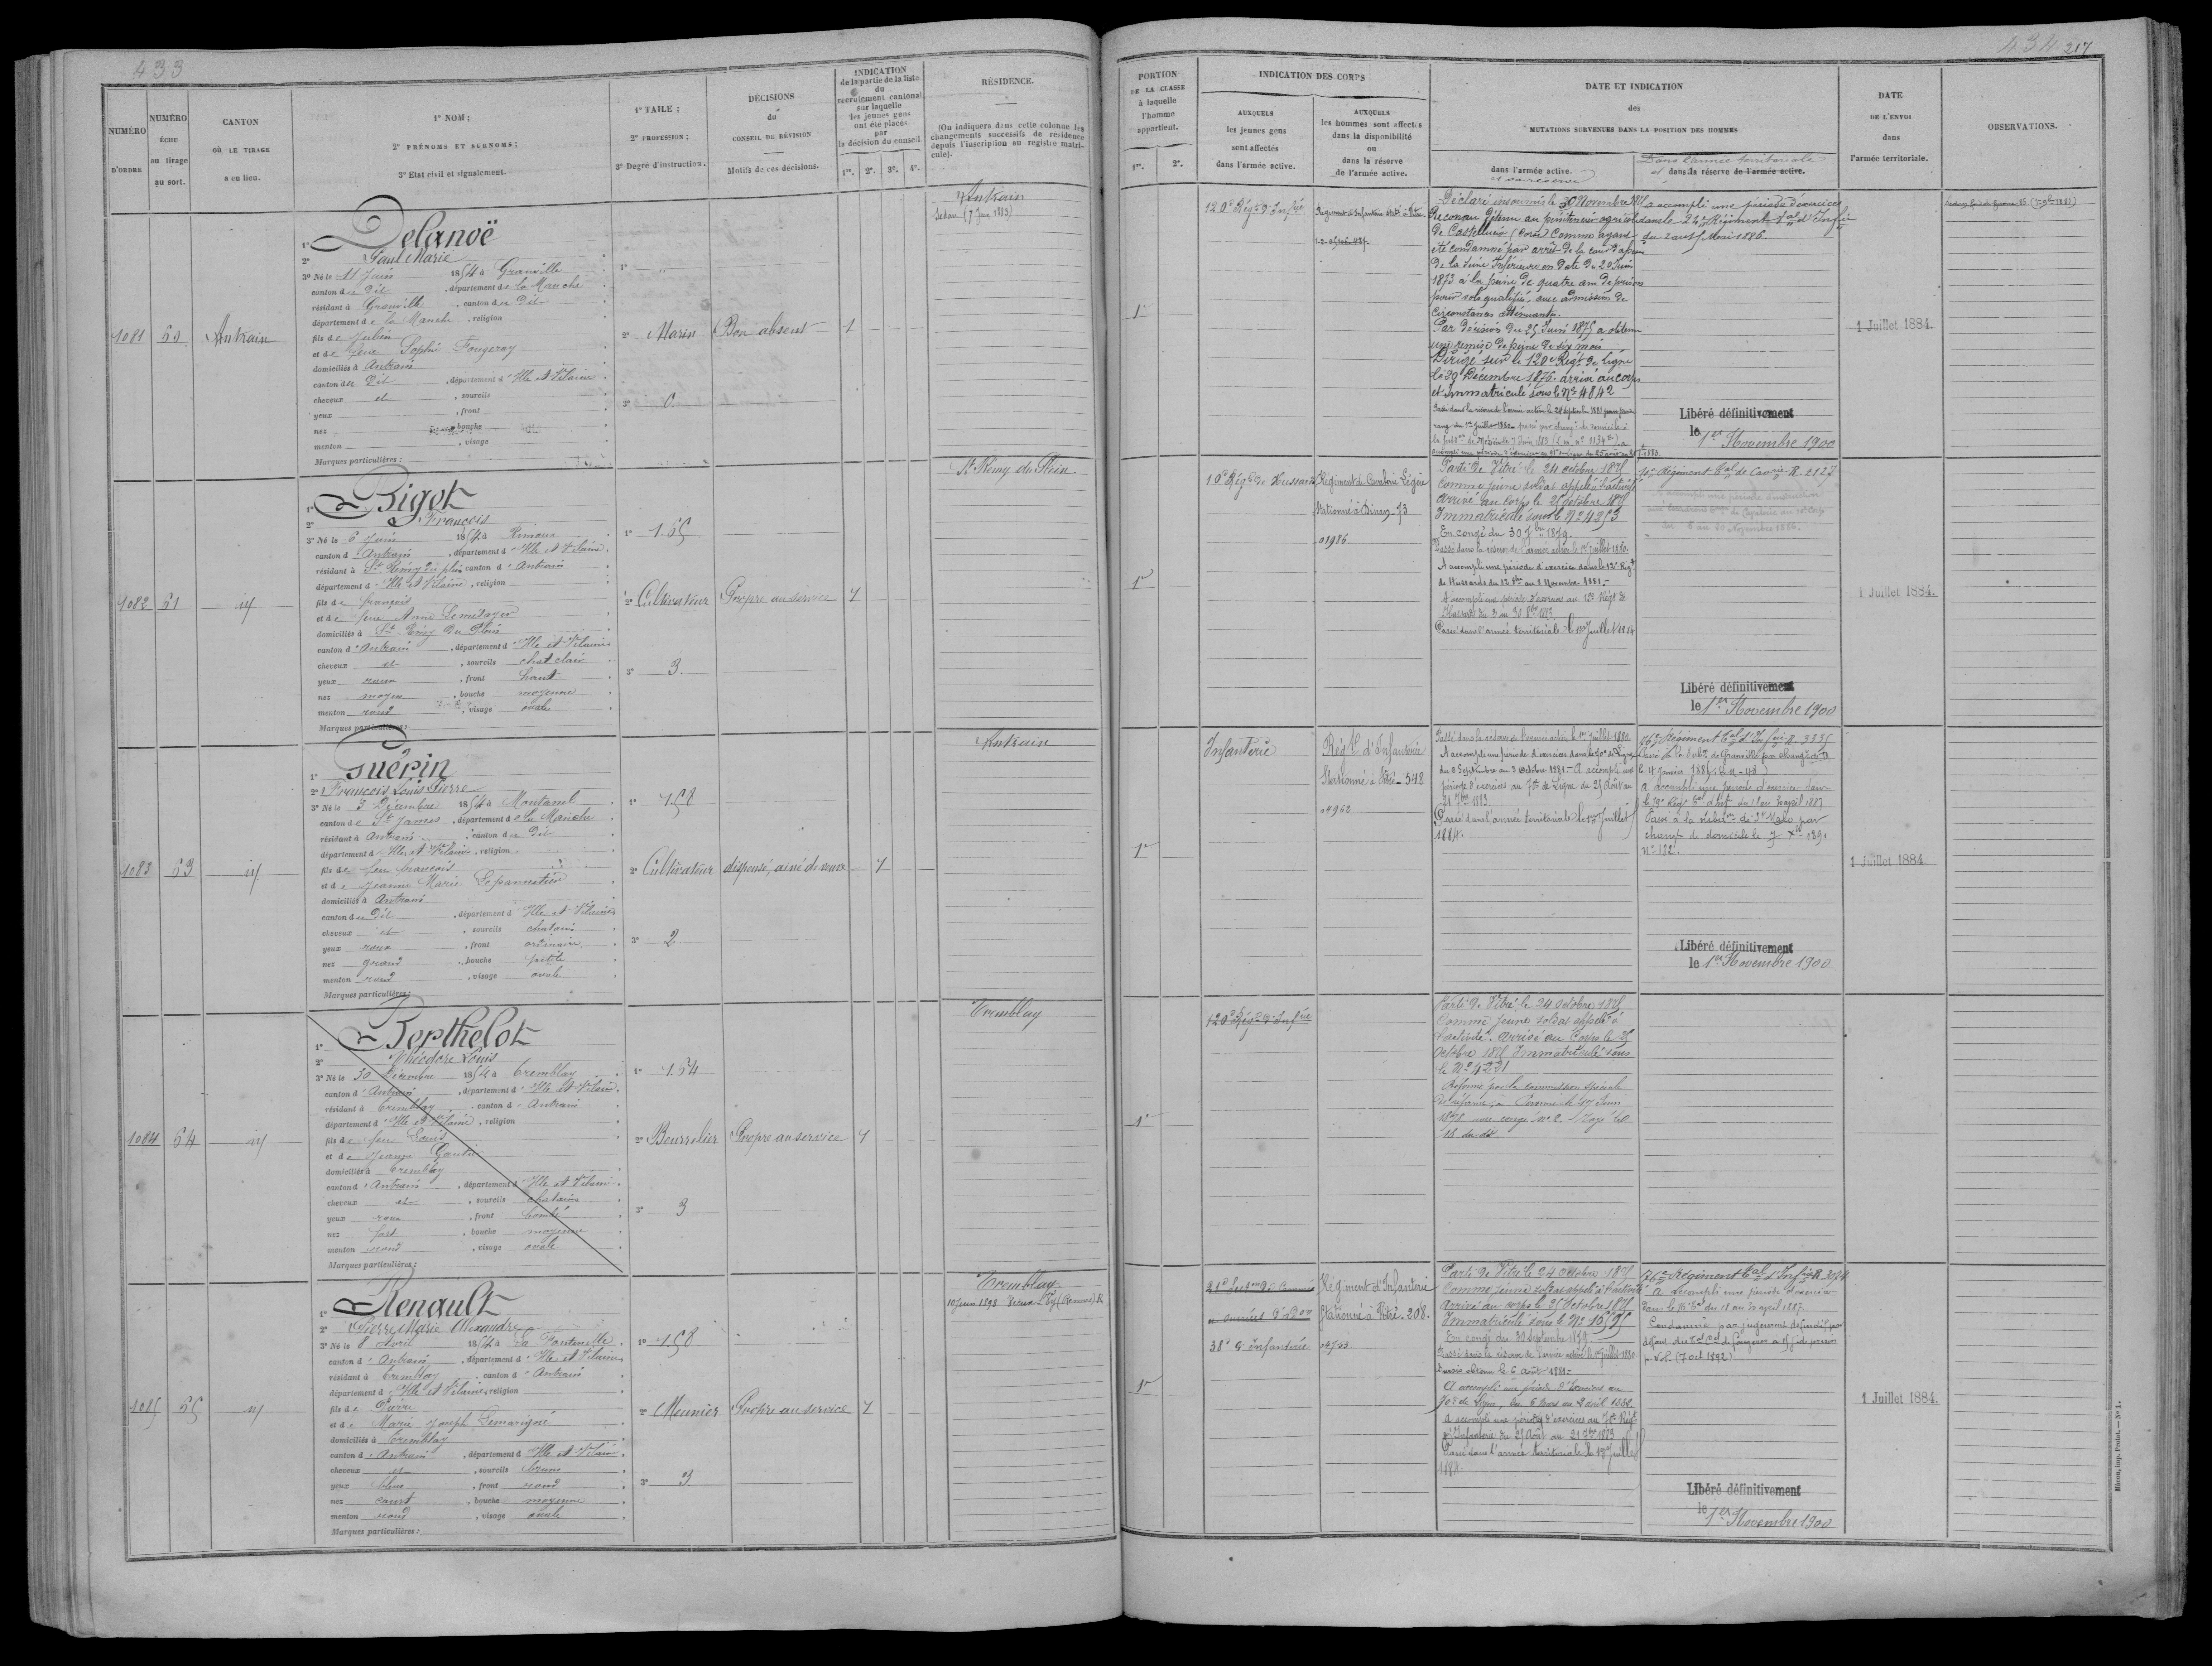 433
NUMÉRO
D'ORDRE
NUMÉRO
ÉCHU
au tirage
au sort.
CANTON
OÙ LE TIRAGE
a eu lieu.
1º NOM ;
2º PRÉNOMS ET SURNOMS ;
3º Etat civil et signalement.
1º TAILE ;
2º PROFESSION ;
3º Degré d'instruction.
DÉCISIONS
du
CONSEIL DE RÉVISION
Motifs de ces décisions.
INDICATION
de la partie de la liste
du
recrutement cantonal
sur laquelle
les jeunes gens
ont été placés
par
la décision du conseil.
1re. 2e. 3e. 4e.
RÉSIDENCE.
(On indiquera dans cette colonne les
changements successifs de résidence
depuis l'inscription au registre matri-
cule).
1081
Antrain
1º Delanoë
2º Paul Marie
3º Né le 11 Juin 1854 à Granville
canton du dit, département de la Manche
résidant à Granville, canton du dit
département de la Manche, religion
fils de Julien
et de feue Sophie Fougeray
domiciliés à Antrain
canton du dit, département d'Ille et Vilaine
cheveux et, sourcils
yeux, front
nez, bouche
menton, visage
Marques particulières :
1º "
2º Marin
3º 0
Bon absent
1
Antrain
Sedan (7 Juin 1883)
1082
61
id
1º Bigot
2º François
3º Né le 6 Juin 1854 à Rimoux
canton d'Antrain, département d'Ille et Vilaine
résidant à St Rémy du plein canton d'Antrain
département d'Ille et Vilaine, religion
fils de françois
et de feue Anne Lemétayer
domiciliés à St Rémy du Plein
canton d'Antrain, département d'Ille et Vilaine
cheveux et, sourcils chat clair
yeux roux, front haut
nez moyen, bouche moyenne
menton rond, visage ovale
Marques particulières :
1º 1.65
2º Cultivateur
3º 3
Propre au service
1
St Rémy du Plein.
1083
63
id
1º Guérin
2º François Louis Pierre
3º Né le 3 Décembre 1854 à Montanel
canton de St James, département de la Manche
résidant à Antrain, canton du dit
département d'Ille et Vilaine, religion
fils de feu françois
et de Jeanne Marie Lepannetier
domiciliés à Antrain
canton du dit, département d'Ille et Vilaine
cheveux et, sourcils chatains
yeux roux, front ordinaire
nez grand, bouche petite
menton rond, visage ovale
Marques particulières :
1º 1.58
2º Cultivateur
3º 2
dispensé, ainé de veuve
1
Antrain
1084
64
id
1º Berthelot
2º Théodore Louis
3º Né le 30 Décembre 1854 à Tremblay
canton d'Antrain, département d'Ille et Vilaine
résidant à Tremblay, canton d'Antrain
département d'Ille et Vilaine, religion
fils de feu Louis
et de Jeanne Gautier
domiciliés à Tremblay
canton d'Antrain, département d'Ille et Vilaine
cheveux et, sourcils chatains
yeux roux, front bombé
nez fort, bouche moyenne
menton rond, visage ovale
Marques particulières :
1º 1.64
2º Bourrelier
3º 3
Propre au service
1
Tremblay
1085
65
id
1º Renault
2º Pierre Marie Alexandre
3º Né le 8 Avril 1854 à La Fontenelle
canton d'Antrain, département d'Ille et Vilaine
résidant à Tremblay, canton d'Antrain
département d'Ille et Vilaine, religion
fils de Pierre
et de Marie Joseph Lemarigné
domiciliés à Tremblay
canton d'Antrain, département d'Ille et Vilaine
cheveux et, sourcils bruns
yeux bleus, front rond
nez court, bouche moyenne
menton rond, visage ovale
Marques particulières :
1º 1.58
2º Meunier
3º 3
Propre au service
1
Tremblay
10 Juin 1898 (Rennes) R
434
217
PORTION
DE LA CLASSE
à laquelle
l'homme
appartient.
1re. 2e.
INDICATION DES CORPS
AUXQUELS
les jeunes gens
sont affectés
dans l'armée active.
AUXQUELS
les hommes sont affectés
dans la disponibilité
ou
dans la réserve
de l'armée active.
DATE ET INDICATION
des
MUTATIONS SURVENUES DANS LA POSITION DES HOMMES
dans l'armée active.
et sa réserve
Dans l'armée territoriale
et dans la réserve de l'armée active.
DATE
DE L'ENVOI
dans
l'armée territoriale.
OBSERVATIONS.
1re
120e Régt d'Infrie
Régiment d'Infanterie
Déclaré insoumis le 30 Novembre
Reconnu détenu au pénitencier agricole
de Castelluccio (Corse) comme ayant
été condamné par arrêt de la cour d'assises
de la Seine Inférieure en date du 20 Juin
1873 à la peine de quatre ans de prison
pour vol qualifié, avec admission de
circonstances atténuantes.
Par décision du 25 Juin 1875 a obtenu
une remise de peine de six mois
Dirigé sur le 120e Régt de ligne
le 29 Décembre 1876. arrivé au corps
et immatriculé sous le Nº 4842
a accompli une période d'exercices
dans le 24e Régiment tal d'Infie
du 2 au Mai 1886.
Libéré définitivement
le 1er Novembre 1900
1 Juillet 1884.
1re
10e Régt de Hussards
Régiment de Cavalerie Légère
Stationné à Dinan - 73
01986
Parti de Vitré le 24 octobre 1875
comme jeune soldat appelé à l'activité
arrivé au corps le 25 octobre 1875
Immatriculé sous le Nº 4253
En congé du 30 7bre 1879.
Passé dans la réserve de l'armée active le 1er Juillet 1880.
A accompli une période d'exercices dans le 12e Régt
de Hussards du 12 8bre au 8 Novembre 1881.
A accompli une période d'exercices au 12e Régt de
Hussards du 3 au 30 8bre 1883.
Passé dans l'armée territoriale le 1er Juillet 1884
10e Régiment tal de Cavrie R. 2127
Libéré définitivement
le 1er Novembre 1900
1 Juillet 1884.
1re
Infanterie
Régt d'Infanterie
Stationné à Vitré - 548
00962
Passé dans la réserve de l'armée active le 1er Juillet 1880.
A accompli une période d'exercices dans le 70e de Ligne
du 6 Septembre au 3 Octobre 1881 - A accompli une
période d'exercices au 70e de Ligne du 25 Août au
21 7bre 1883.
Passé dans l'armée territoriale le 1er Juillet
1884.
76e Régiment tal d'Infrie R. 3335
Passé à la subdon de Granville par changt de Dle
le 4 Janvier 1885
a accompli une période d'exercices dans
Passé à la subdon de St Malo par
changt de domicile le 7 Xbre 1891
Nº 132.
Libéré définitivement
le 1er Novembre 1900
1 Juillet 1884.
1re
120e Régt d'Infrie
Parti de Vitré le 24 octobre 1875
comme jeune soldat appelé à
l'activité. arrivé au Corps le 25
Octobre 1875 Immatriculé sous
le Nº 4221
Réformé par la commission spéciale
de réforme, à Péronne le 17 Juin
1878
18 du dit
1re
38e d'infanterie
Régiment d'Infanterie
Stationné à Vitré - 208.
00753
Parti de Vitré le 24 Octobre 1875
comme jeune soldat appelé à l'activité
Arrivé au corps le 25 Octobre 1875
Immatriculé sous le Nº 10595
En congé du 30 Septembre 1879
Passé dans la réserve de l'armée active le 1er Juillet 1880.
Sursis obtenu le 6 août 1881.
A accompli une période d'Exercices au
70e de Ligne, du 6 Mars au 2 avril 1882.
A accompli une période d'exercices au 70e Régt
d'Infanterie du 25 Août au 21 7bre 1883
Passé dans l'armée territoriale le 1er Juillet
1884.
76e Régiment tal d'Infrie R. 3024
A accompli une période d'exercices
dans le 76e tal du 18 au 30 avril 1887
Condamné par jugement définitif par
défaut du tal Cel de fougeres à 15 j. de prison
p. vol. (7 oct 1892)
Libéré définitivement
le 1er Novembre 1900
1 Juillet 1884.
Mâcon, imp. Protat. — Nº 1.